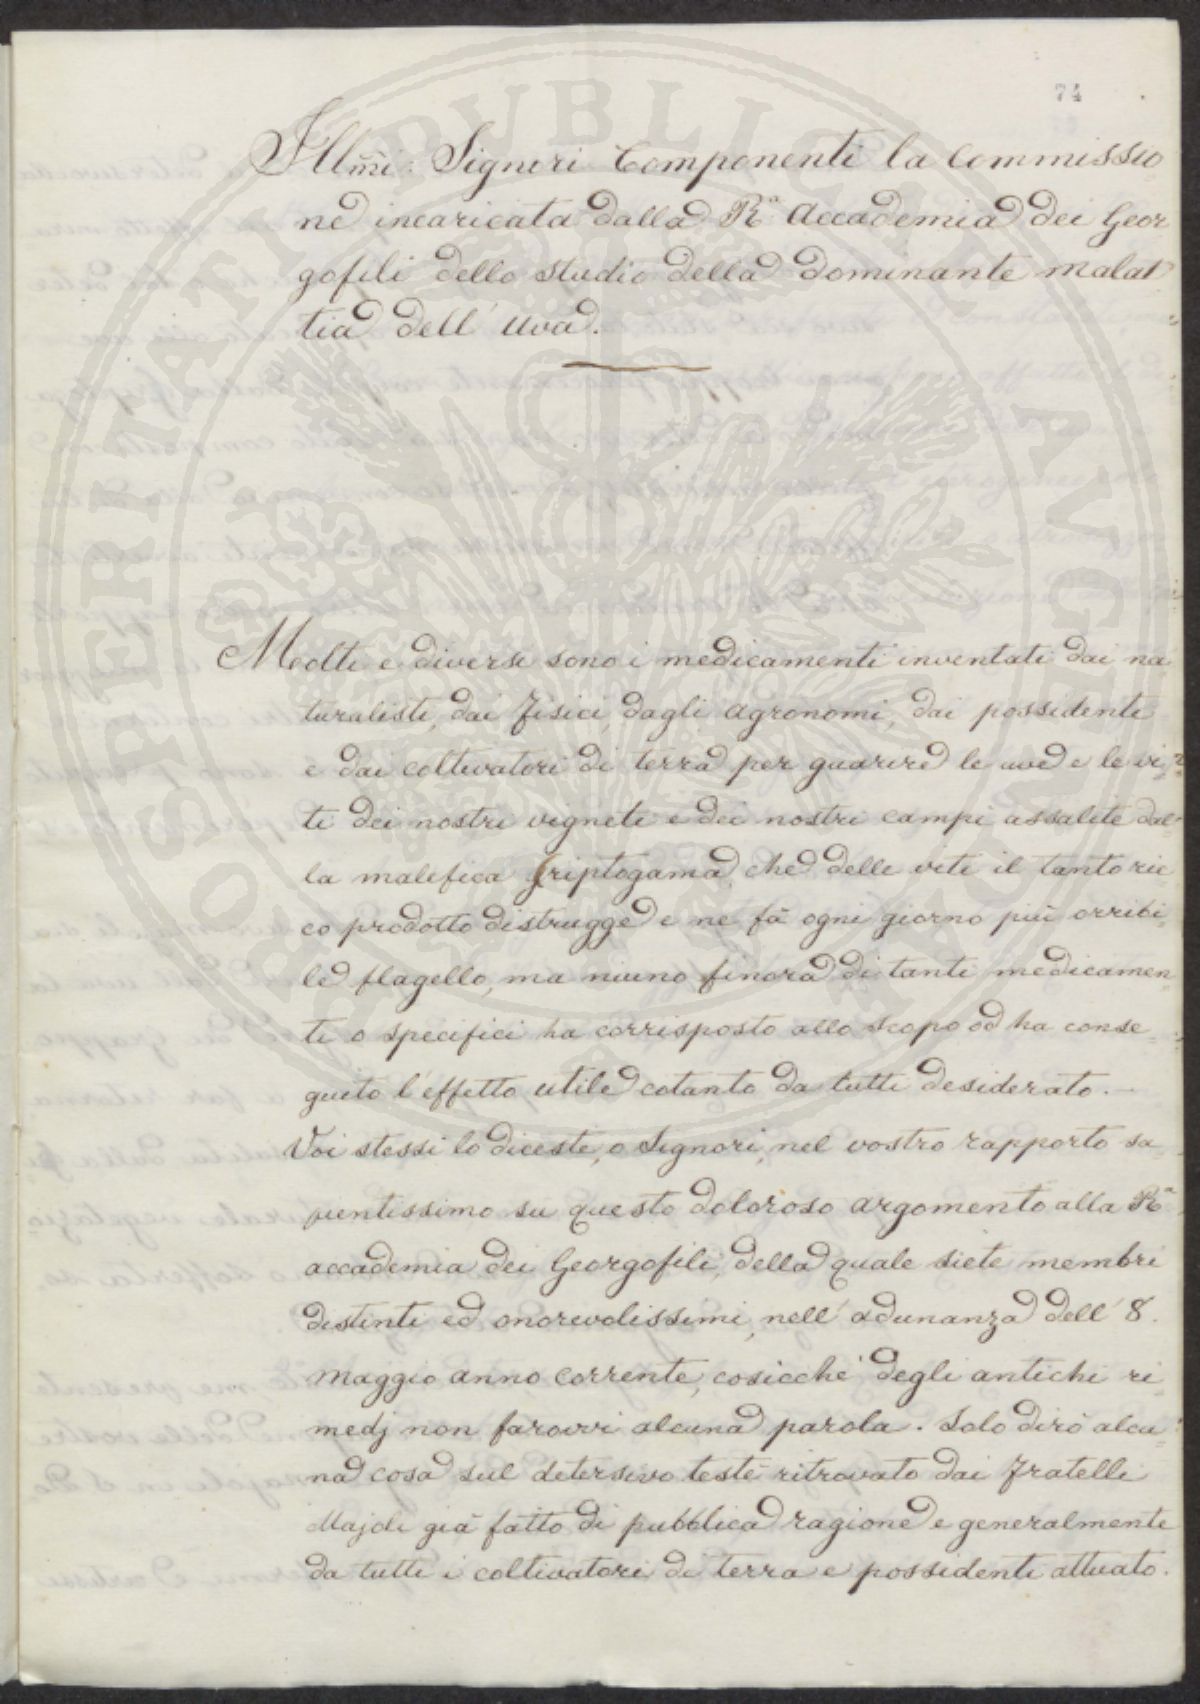 74
Illmi. Signori Componenti la Commissio
ne incaricata dalla Ra. Accademia dei Geor
gofili dello studio della dominante malat
tia dell'Uva.
Molti e diversi sono i medicamenti inventati dai na
turalisti, dai fisici, dagli agronomi, dai possidenti
e dai coltivatori di terra per guarire le uve e le vi=
ti dei nostri vigneti e dei nostri campi assalite dal=
la malefica Criptogama, che delle viti il tanto ric=
co prodotto distrugge e ne fà ogni giorno più orribi=
le flagello, ma niuno finora di tanti medicamen=
ti o specifici ha corrisposto allo scopo od ha conse=
guito l'effetto utile cotanto da tutti desiderato.
Voi stessi lo diceste, o Signori, nel vostro rapporto sa
pientissimo su questo doloroso argomento alla Ra
accademia dei Georgofili, della quale siete membri
distinti ed onorevolissimi, nell'adunanza dell'8.
Maggio anno corrente, cosicchè degli antichi ri=
medj non farovvi alcuna parola. Solo dirò alcu=
na cosa sul detersivo testè ritrovato dai Fratelli
Majoli già fatto di pubblica ragione e generalmente
da tutti i coltivatori di terra e possidenti attuato.
PROSPERITATI PUBLICAE AUGENDAE